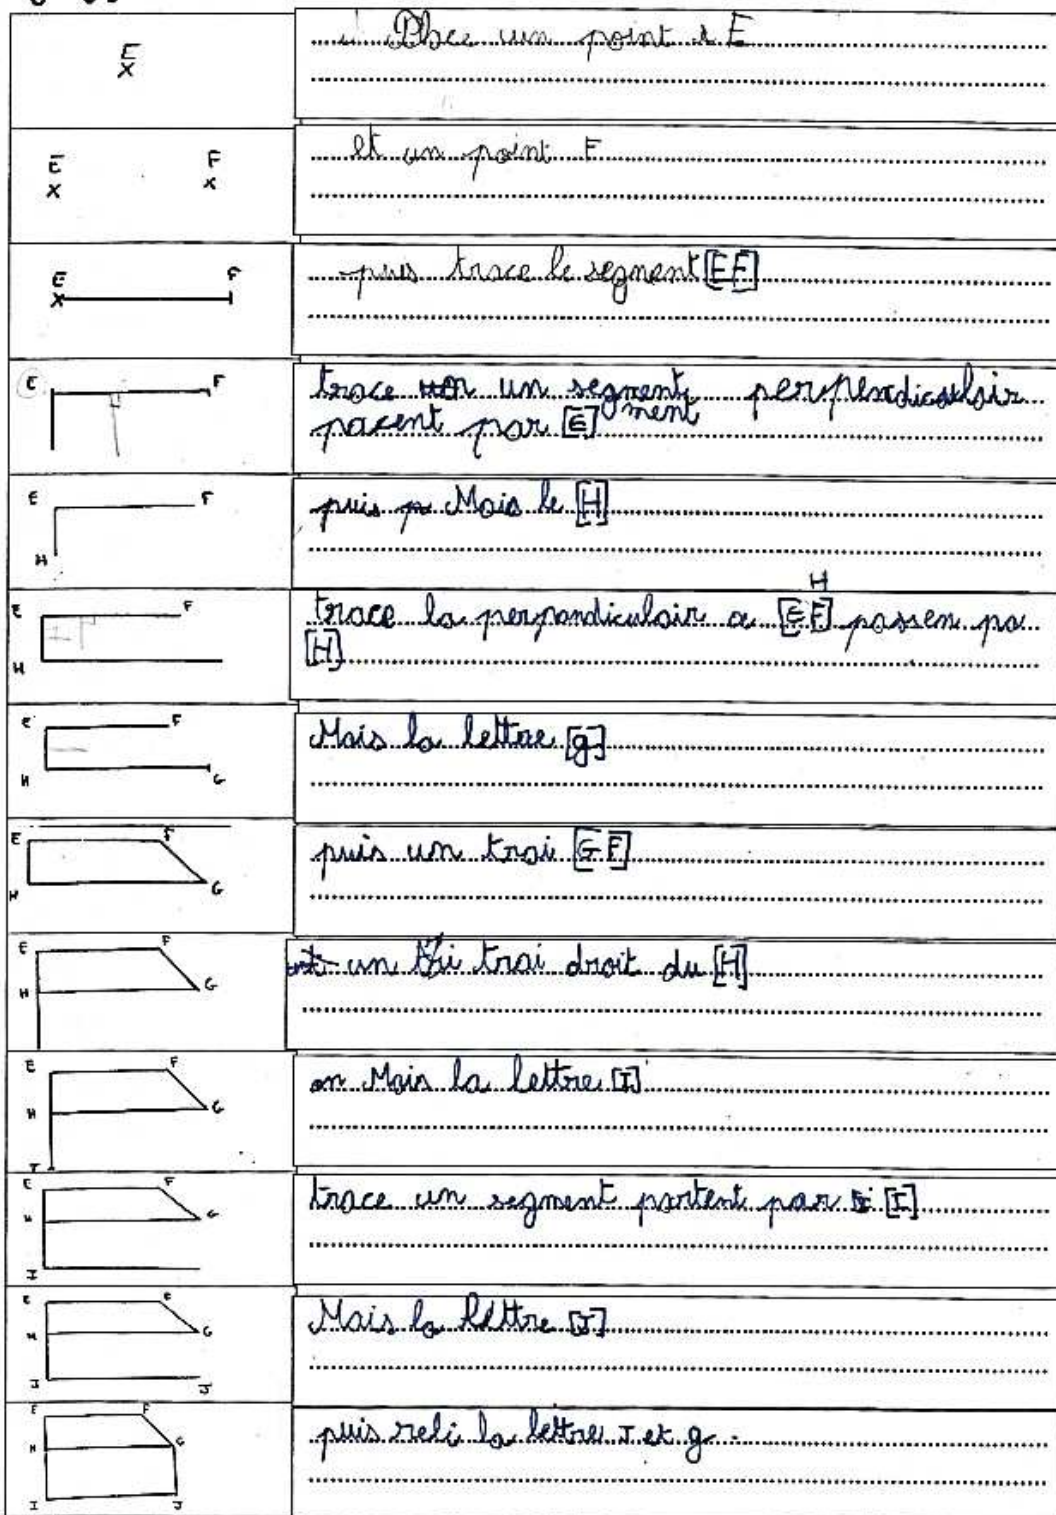 E
Place un point E
E F
et un point F
E F
puis trace le segment [EF]
E F
trace un segment perpendiculair
ment
pacent par [E]
E F
H
puis p Mais le [H]
E F
H
H
trace la perpandiculair a [EF] passen pa
[H]
E F
H G
Mais la lettre [g]
E F
H G
puis un trai [GF]
E F
H G
un trai droit du [H]
E F
H G
I
on Mais la lettre [I]
E F
H G
I
trace un segment partent par [I]
E F
H G
I J
Mais la lettre [J]
E F
H G
I J
puis reli la lettre J et g.